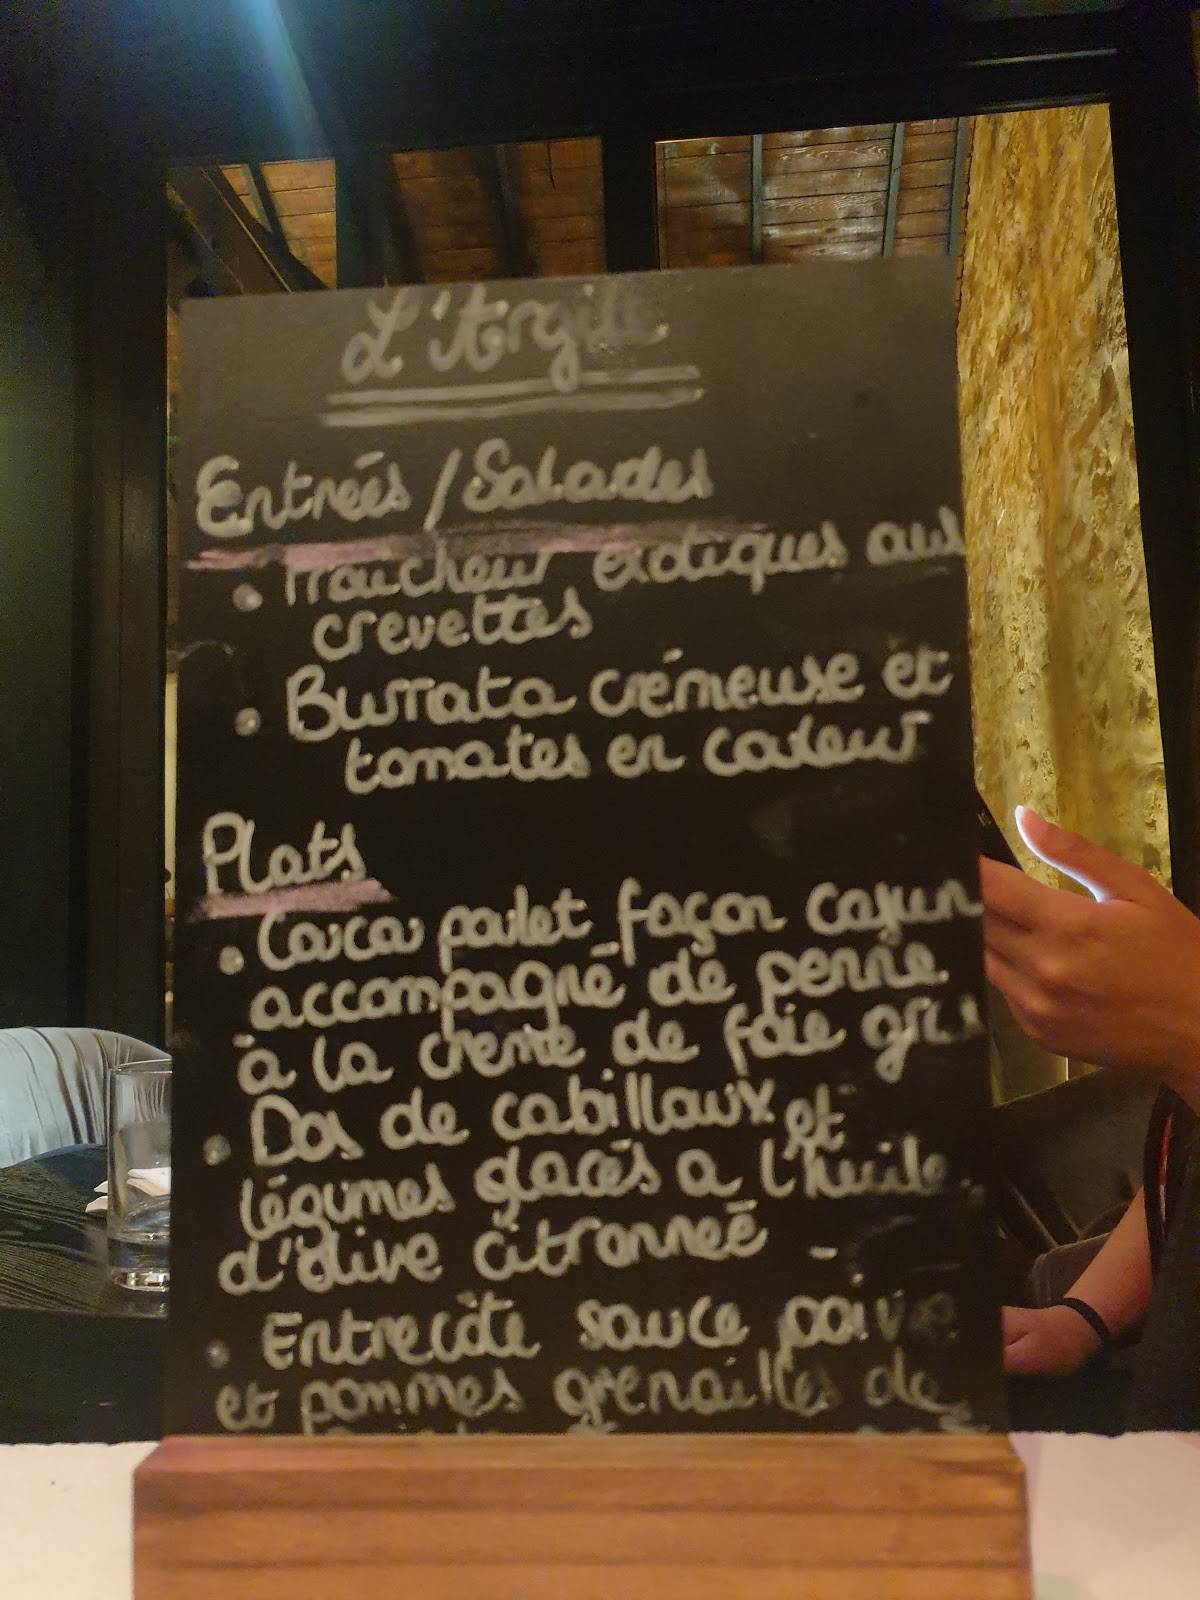 L'Argile
Entrées / Salades
• Fraicheur exotiques aux
crevettes
• Burrata crémeuse et
tomates en couleur
Plats
• Coucou poulet façon cajun
accompagné de penne
à la creme de foie gras
• Dos de cabillaux et
légumes glacés a l'huile
d'olive citronneé
• Entrecôte sauce poivre
et pommes grenailles de